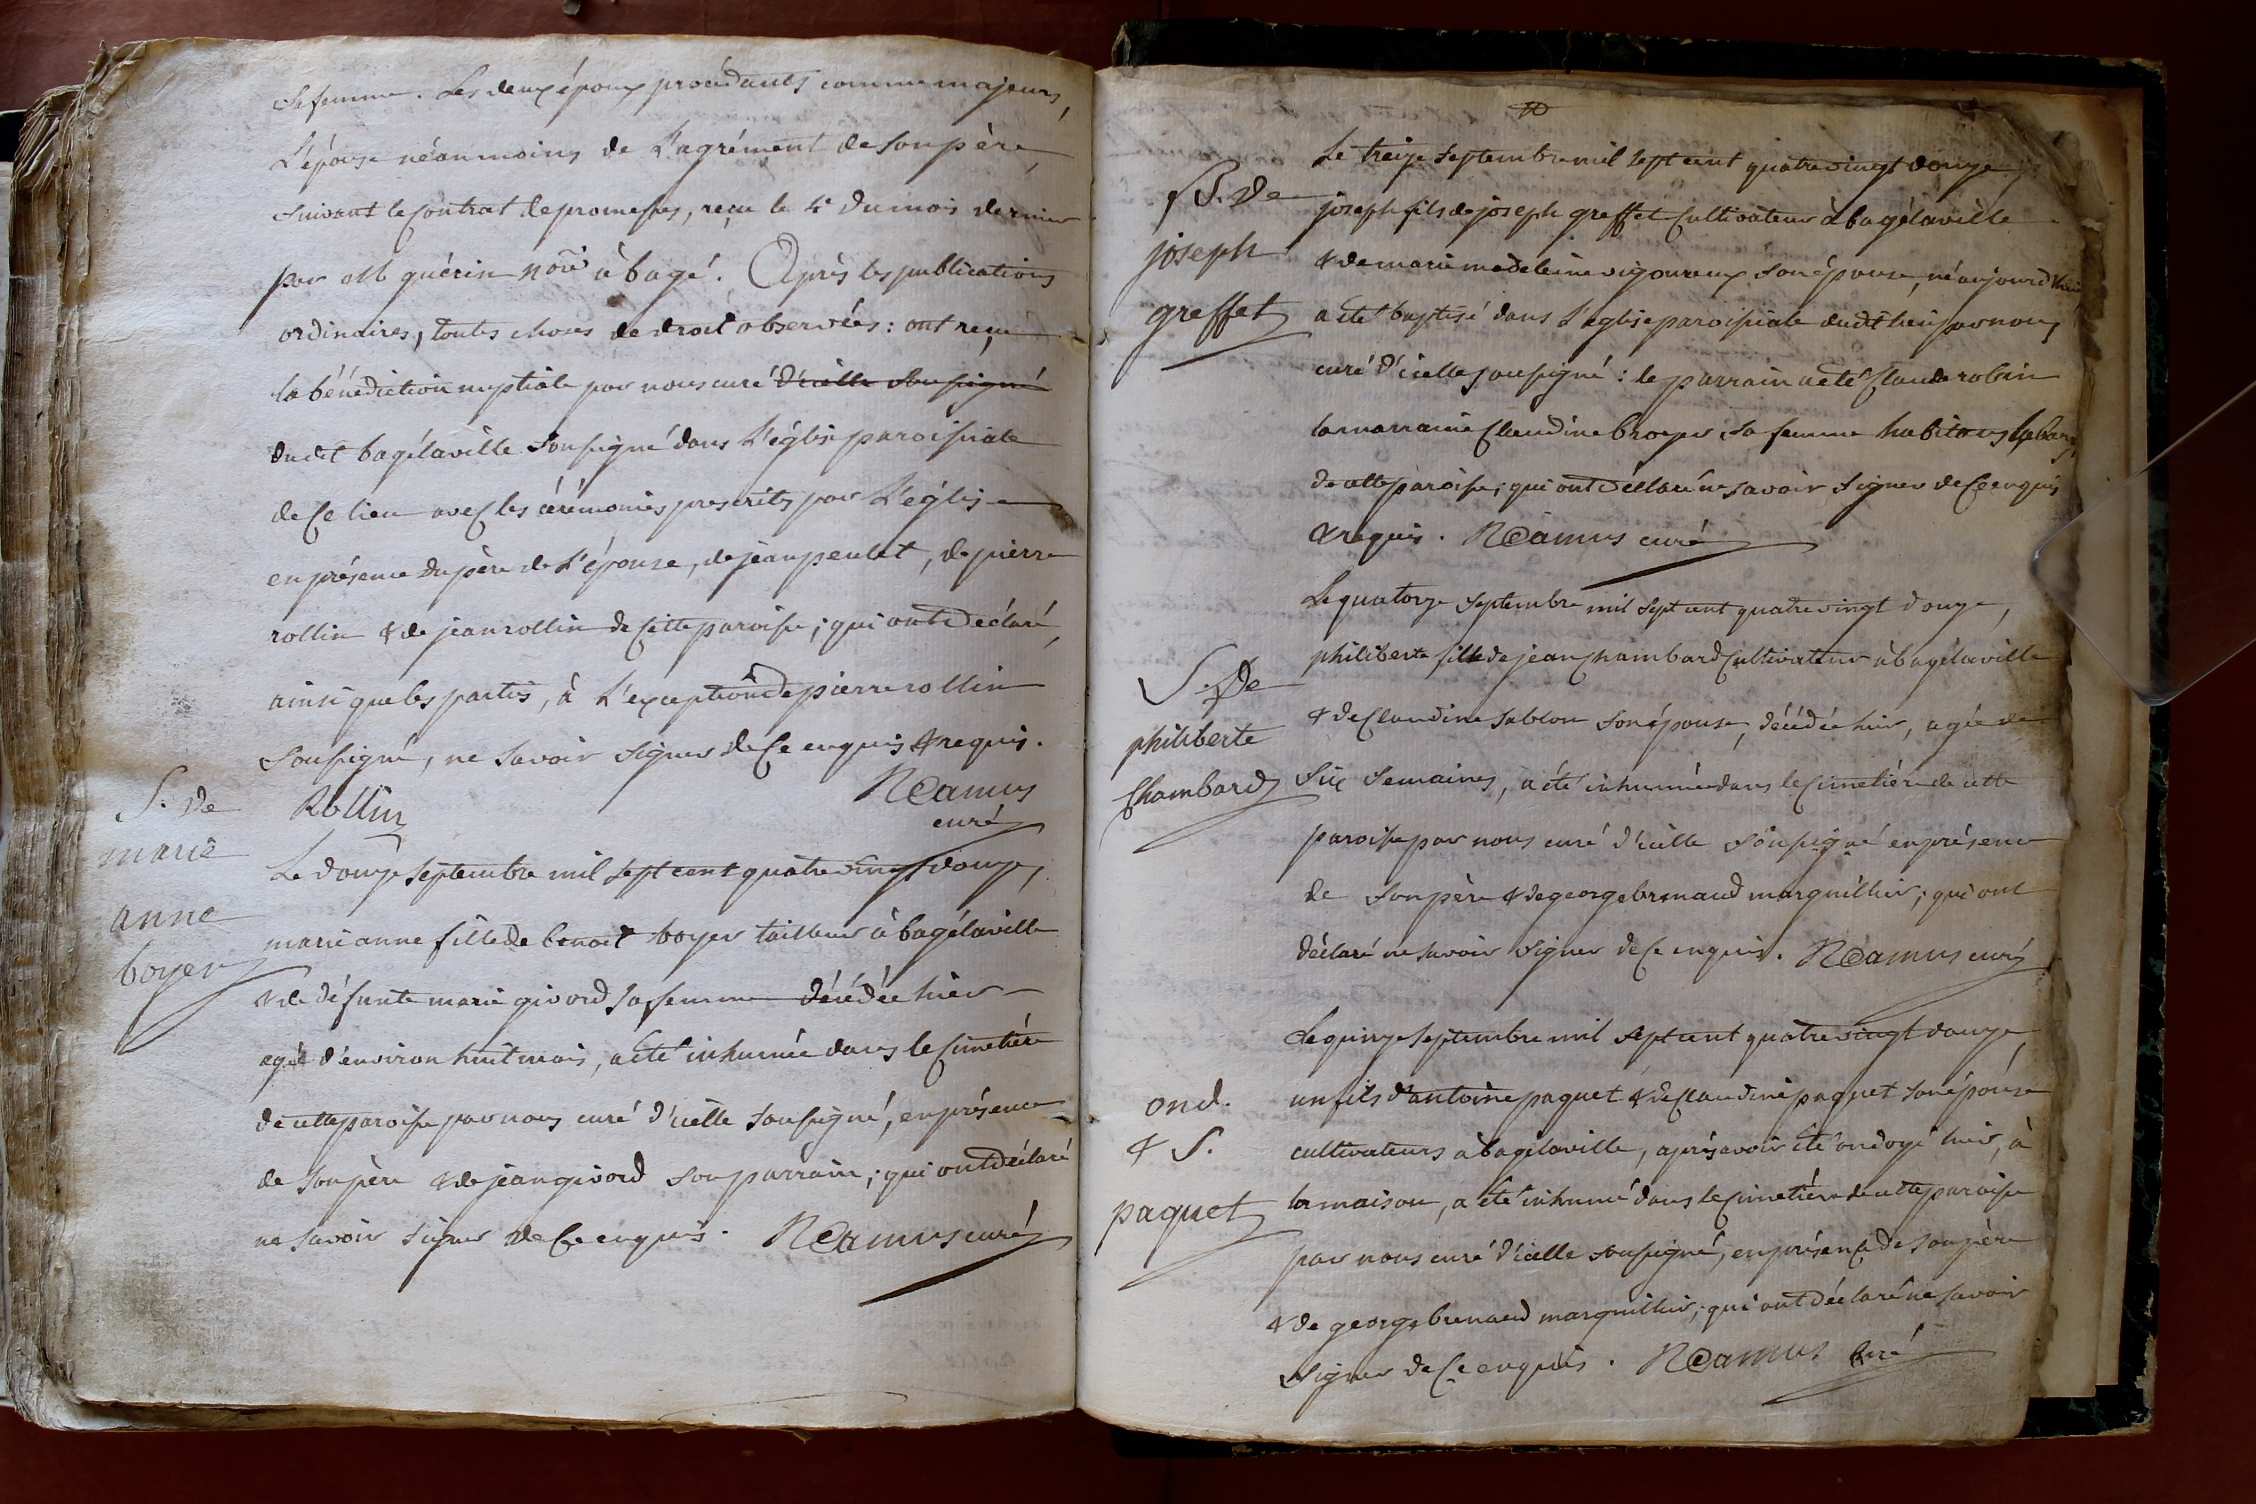 sa femme. Les deux époux procédants comme majeurs,
L'épouse néanmoins de L'agrément de son père,
suivant le contrat de promesses, reçu le 4e du mois dernier
par Mt guérin nore à bagé. Après les publications
ordinaires, toutes choses de droit observées : ont reçu
la bénédiction nuptiale par nous curé d'icelle soussigné
dudit bagélaville soussigné dans L'église paroissiale
de ce lieu avec les cérémonies prescrites par L'église
en présence du père de L'épouse, de jean peulet, de pierre
rollin & de jean rollin de cette paroisse ; qui ont déclaré,
ainsi que les parties, à L'exception de pierre rollin
soussigné, ne savoir signer de ce enquis & requis.
Rollin
NCamus
curé
S. de
marie
anne
boyer
Le douze septembre mil sept cent quatre vingt douze,
marie anne fille de benoit boyer tailleur à bagélaville
& de défunte marie givord sa femme décédée hier
agée d'environ huit mois, a été inhumée dans le cimetière
de cette paroisse par nous curé d'icelle soussigné, en présence
de son père & de jean givord son parrain ; qui ont déclaré
ne savoir signer de ce enquis. NCamus curé
B. de
joseph
greffet
Le treize septembre mil sept cent quatre vingt douze,
joseph fils de joseph greffet cultivateur à bagélaville
& de marie madeleine vigoureux son épouse, né aujourd'hui,
a été baptisé dans l'église paroissiale dudit lieu par nous
curé d'icelle soussigné : le parrain a été Claude robin
la marraine Claudine broyer sa femme habitans
de cette paroisse ; qui ont déclaré ne savoir signer de ce enquis
& requis. NCamus curé
S. De
philiberte
Chambard
Le quatorze septembre mil sept cent quatre vingt douze,
philiberte fille de jean Chambard cultivateur à bagélaville
& de Claudine sablon son épouse, décédée hier, agée de
six semaines, a été inhumée dans le cimetière de cette
paroisse par nous curé d'icelle soussigné en présence
de son père & de george brenaud marguillier ; qui ont
déclaré ne savoir signer de ce enquis. NCamus curé
ond.
& S.
paquet
Le quinze septembre mil sept cent quatre vingt douze
un fils d'antoine paquet & de Claudine paquet son épouse
cultivateurs à bagélaville, après avoir été ondoyé hier, à
la maison, a été inhumé dans le cimetière de cette paroisse
par nous curé d'icelle soussigné, en présence de son père
& de george brenaud marguillier ; qui ont déclaré ne savoir
signer de ce enquis. NCamus curé